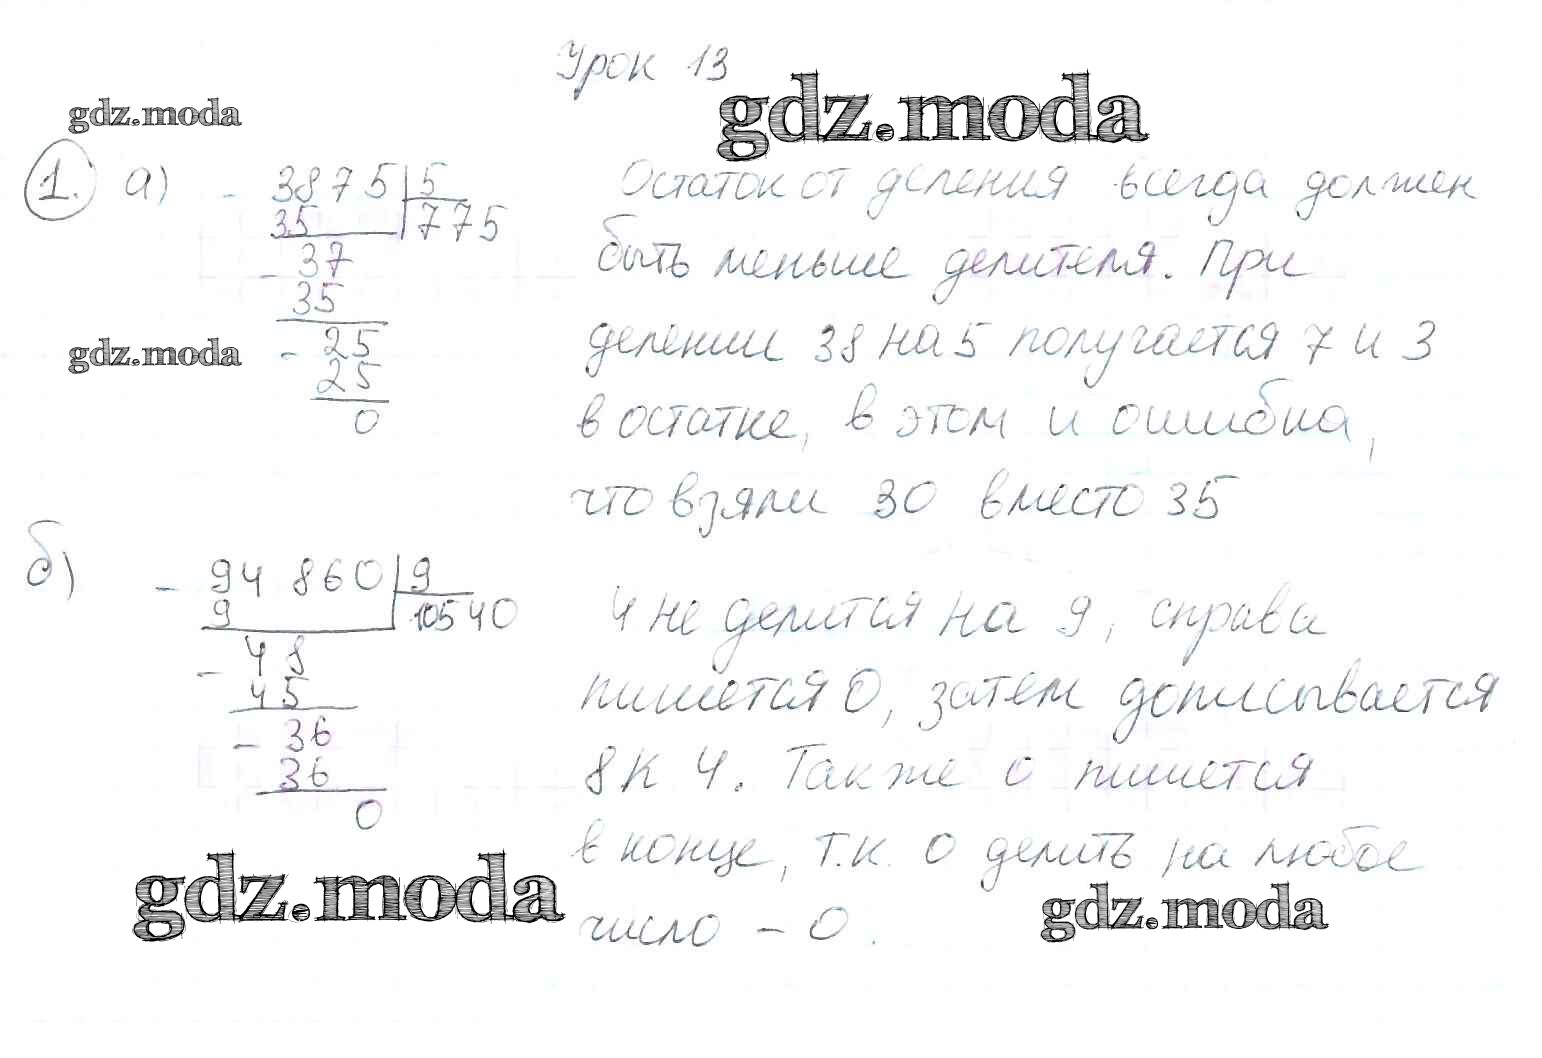 Урок 13
gdz.moda
gdz.moda
1. а) - 3875 5
35 775
- 37
35
- 25
25
0
Остаток от деления всегда должен
быть меньше делителя. При
делении 38 на 5 получается 7 и 3
в остатке, в этом и ошибка,
что взяли 30 вместо 35
gdz.moda
б) - 94 860 9
9 10540
- 48
45
- 36
36
0
4 не делится на 9, справа
пишется 0, затем дописывается
8 к 4. Также 0 пишется
в конце, т.к. 0 делить на любое
число - 0.
gdz.moda
gdz.moda